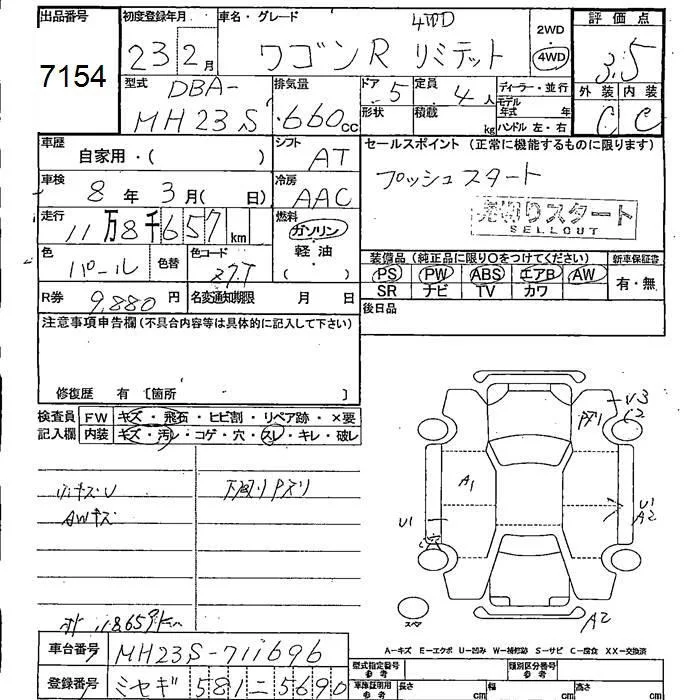 出品番号
7154
初度登録年月
23 2月
車名・グレード
4WD
ワゴンR リミテット
2WD
4WD
評価点
3.5
外装 内装
C C
型式
DBA-
MH23S
排気量
660cc
ドア 5
形状
定員 4人
積載 kg
ディーラー・並行
モデル年式 年
ハンドル 左・右
車歴
自家用・( )
シフト
AT
セールスポイント (正常に機能するものに限ります)
プッシュスタート
売切りスタート
SELLOUT
車検
8年 3月( 日)
冷房
AAC
走行
11万8千657km
燃料
ガソリン
軽油
( )
色
パール
色替
色コード
Z7T
装備品 (純正品に限り〇をつけてください)
PS PW ABS エアB AW
SR ナビ TV カワ
新車保証書
有・無
R券 9,880円
名変通知期限 月 日
後日品
注意事項申告欄 (不具合内容等は具体的に記入して下さい)
修復歴 有 〔箇所 〕
検査員
記入欄
FW キズ・飛石・ヒビ割・リペア跡・×要
内装 キズ・汚レ・コゲ・穴・スレ・キレ・破レ
小キズU
AWキズ
下回り Pズリ
V3
C2
A1
U1
U1
A2
スペア
A2
118659km
A=キズ E=エクボ U=凹み W=補修跡 S=サビ C=腐食 XX=交換済
車台番号
MH23S-711696
登録番号
ミヤギ 581ニ5690
型式指定番号
参考
類別区分番号
参考
車庫証明用
参考
長さ cm
幅 cm
高さ cm